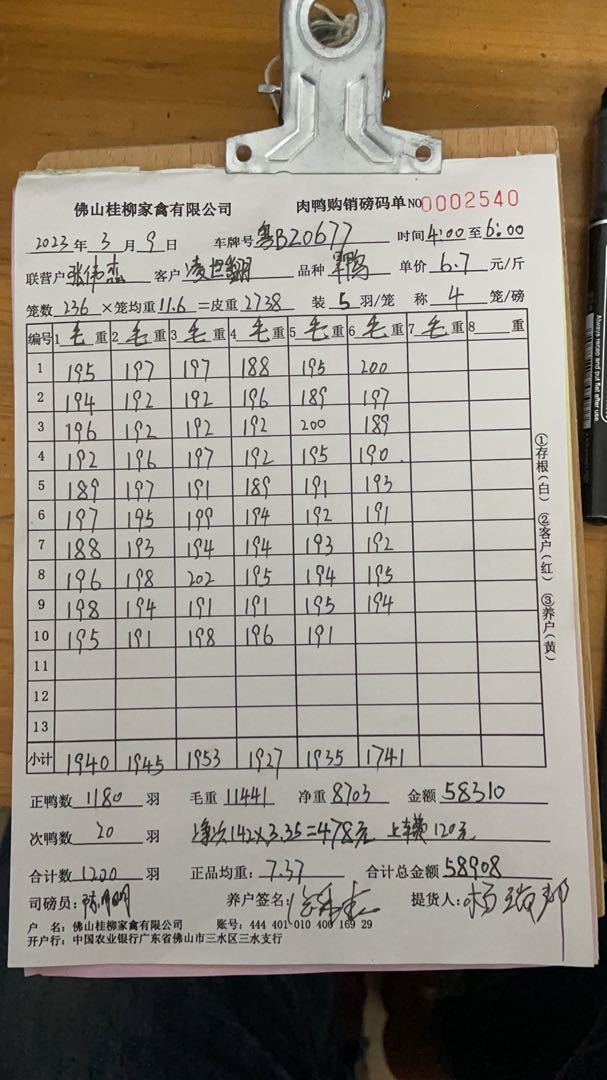 佛山桂柳家禽有限公司 肉鸭购销磅码单 NO 0002540
2023 年 3 月 9 日 车牌号 粤BZ0677 时间 4:00 至 6:00
联营户 张伟 客户 凌世翻 品种 鸭 单价 6.7 元/斤
笼数 236 ×笼均重 11.6 =皮重 2738 装 5 羽/笼 称 4 笼/磅
编号 1 毛 重 2 毛 重 3 毛 重 4 毛 重 5 毛 重 6 毛 重 7 毛 重 8 重
1 195 197 197 188 195 200
2 194 192 192 196 189 197
3 196 192 192 192 200 189
4 192 196 197 192 195 190
5 189 197 191 189 191 193
6 197 195 199 194 192 191
7 188 193 194 194 193 192
8 196 198 202 195 194 195
9 198 194 191 191 195 194
10 195 191 198 196 191
11
12
13
小计 1940 1945 1953 1927 1935 1741
正鸭数 1180 羽 毛重 11441 净重 8703 金额 58310
次鸭数 20 羽 净次142×3.35=478元 上车费120元
合计数 1200 羽 正品均重: 7.37 合计总金额 58908
司磅员: 养户签名: 提货人: 杨
户 名: 佛山桂柳家禽有限公司 账号: 444 401 010 400 169 29
开户行: 中国农业银行广东省佛山市三水区三水支行
①存根(白) ②客户(红) ③养户(黄)
Always recap and put flat after use